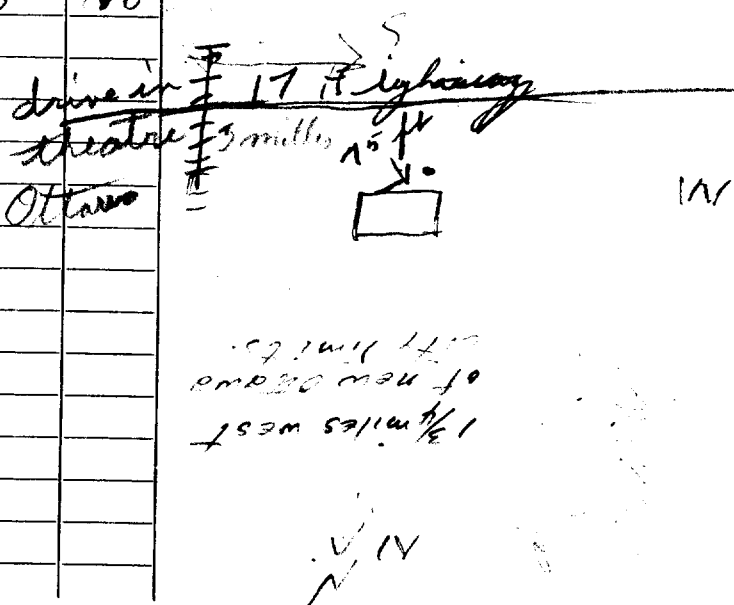 S
drive in 17 Highway
theatre 3 miles 15 ft
Ottawa
W
1 3/4 miles west
of new Ottawa
city limits.
N